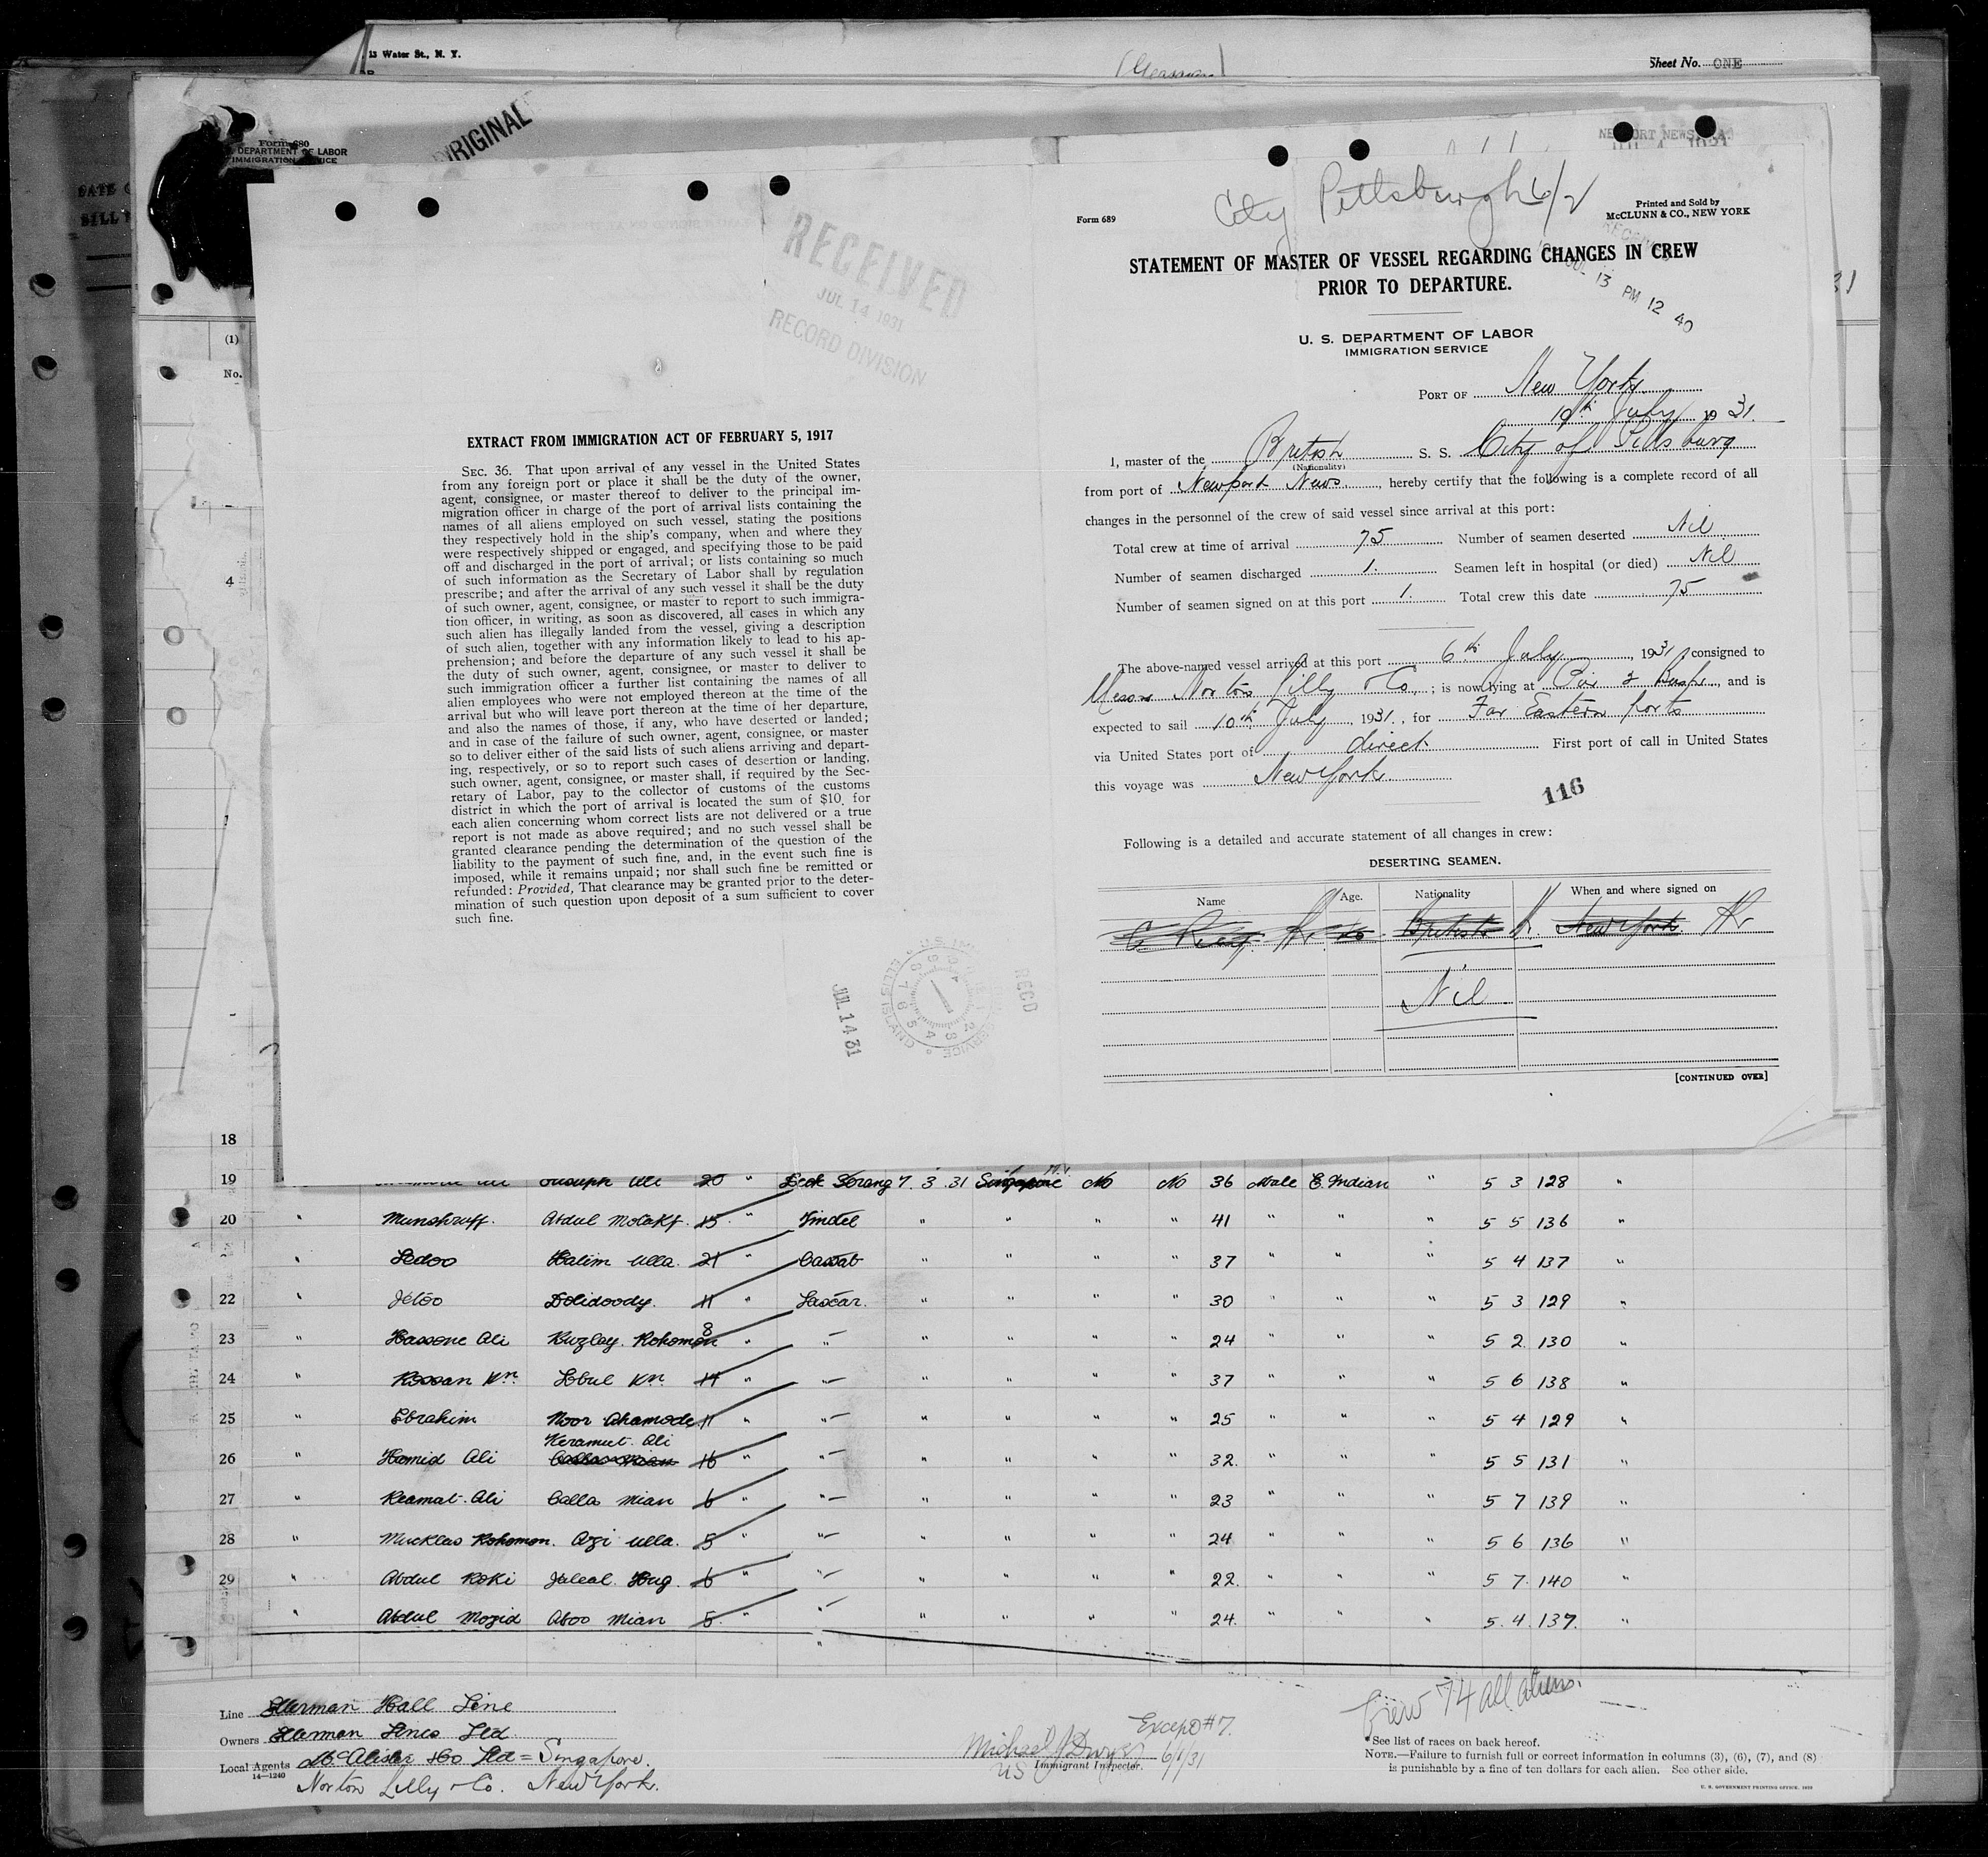 13 Water St., N. Y.
Sheet No. ONE
Form 680
DEPARTMENT OF LABOR
IMMIGRATION SERVICE
ORIGINAL
(1)
No.
4
RECEIVED
JUL 14 1931
RECORD DIVISION
EXTRACT FROM IMMIGRATION ACT OF FEBRUARY 5, 1917
SEC. 36. That upon arrival of any vessel in the United States
from any foreign port or place it shall be the duty of the owner,
agent, consignee, or master thereof to deliver to the principal im-
migration officer in charge of the port of arrival lists containing the
names of all aliens employed on such vessel, stating the positions
they respectively hold in the ship's company, when and where they
were respectively shipped or engaged, and specifying those to be paid
off and discharged in the port of arrival; or lists containing so much
of such information as the Secretary of Labor shall by regulation
prescribe; and after the arrival of any such vessel it shall be the duty
of such owner, agent, consignee, or master to report to such immigra-
tion officer, in writing, as soon as discovered, all cases in which any
such alien has illegally landed from the vessel, giving a description
of such alien, together with any information likely to lead to his ap-
prehension; and before the departure of any such vessel it shall be
the duty of such owner, agent, consignee, or master to deliver to
such immigration officer a further list containing the names of all
alien employees who were not employed thereon at the time of the
arrival but who will leave port thereon at the time of her departure,
and also the names of those, if any, who have deserted or landed;
and in case of the failure of such owner, agent, consignee, or master
so to deliver either of the said lists of such aliens arriving and depart-
ing, respectively, or so to report such cases of desertion or landing,
such owner, agent, consignee, or master shall, if required by the Sec-
retary of Labor, pay to the collector of customs of the customs
district in which the port of arrival is located the sum of $10 for
each alien concerning whom correct lists are not delivered or a true
report is not made as above required; and no such vessel shall be
granted clearance pending the determination of the question of the
liability to the payment of such fine, and, in the event such fine is
imposed, while it remains unpaid; nor shall such fine be remitted or
refunded: Provided, That clearance may be granted prior to the deter-
mination of such question upon deposit of a sum sufficient to cover
such fine.
JUL 14 31
ELLIS ISLAND
RECD
NEWPORT NEWS, VA.
City Pittsburgh 6/2
Form 689
Printed and Sold by
McCLUNN & CO., NEW YORK
RECEIVED
JUL 13 PM 12 40
STATEMENT OF MASTER OF VESSEL REGARDING CHANGES IN CREW
PRIOR TO DEPARTURE.
U. S. DEPARTMENT OF LABOR
IMMIGRATION SERVICE
PORT OF New York
10th July 1931.
I, master of the British S. S. City of Pittsburg
(Nationality)
from port of Newport News, hereby certify that the following is a complete record of all
changes in the personnel of the crew of said vessel since arrival at this port:
Total crew at time of arrival 75 Number of seamen deserted Nil
Number of seamen discharged 1. Seamen left in hospital (or died) Nil
Number of seamen signed on at this port 1. Total crew this date 75
The above-named vessel arrived at this port 6th July, 1931, consigned to
Messrs Norton Lilly & Co.; is now lying at Pier 2 Bush, and is
expected to sail 10th July, 1931, for Far Eastern ports
via United States port of direct First port of call in United States
this voyage was New York
116
Following is a detailed and accurate statement of all changes in crew:
DESERTING SEAMEN.
Name Age. Nationality When and where signed on
British New York
Nil
[CONTINUED OVER]
18
19 Ali 20 " Deck Serang 7. 3. 31 Singapore No No 36 Male E. Indian " 5 3 128 "
20 " Munshruff. Abdul Motakf. 15. " Tindel " " " " 41 " " " 5 5 136 "
" Sedoo Halim Ulla. 21 " Cassab " " " " 37 " " " 5 4 137 "
22 " Jeloo Dolidoody. 11 " Lascar. " " " " 30 " " " 5 3 129 "
23 " Hassone Ali Kuzley. Rohomon 8 " " " " " " 24 " " " 5 2. 130 "
24 " Rossan Kn. Sobul Kn. 14 " " " " " " 37 " " " 5 6 138 "
25 " Ebrahim Noor Ahamode. 11 " " " " " " 25 " " " 5 4 129 "
Keramut. Ali
26 " Hamid Ali 16 " " " " " " 32. " " " 5 5 131 "
27 " Keamat. Ali Calla Mian 6 " " " " " " 23 " " " 5 7 139 "
28 " Mucklas Rohomon. Azi Ulla. 5 " " " " " 24 " " " 5 6 136 "
29 " Abdul Roki Jaleal. Hug. 6 " " " " " " 22. " " " 5 7. 140 "
" Abdul Mozid Aboo Mian 5. " " " " " " 24. " " " 5. 4. 137. "
Line Ellerman Hall Line
Owners Ellerman Lines Ltd
Local Agents McAlister & Co Ltd = Singapore.
14—1240
Norton Lilly & Co. New York.
Except #7.
Michael J Dwyer 6/1/31
US Immigrant Inspector.
Crew 74 all aliens.
*See list of races on back hereof.
NOTE.—Failure to furnish full or correct information in columns (3), (6), (7), and (8)
is punishable by a fine of ten dollars for each alien. See other side.
U. S. GOVERNMENT PRINTING OFFICE